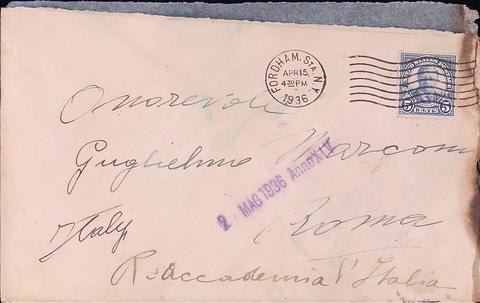 FORDHAM. STA. N.Y.
APR 15
4 30 PM
1936
5 CENTS 5
Onorevole
Guglielmo Marconi
2 MAG 1936 Anno XIV
Italy Roma
R. Accademia d'Italia